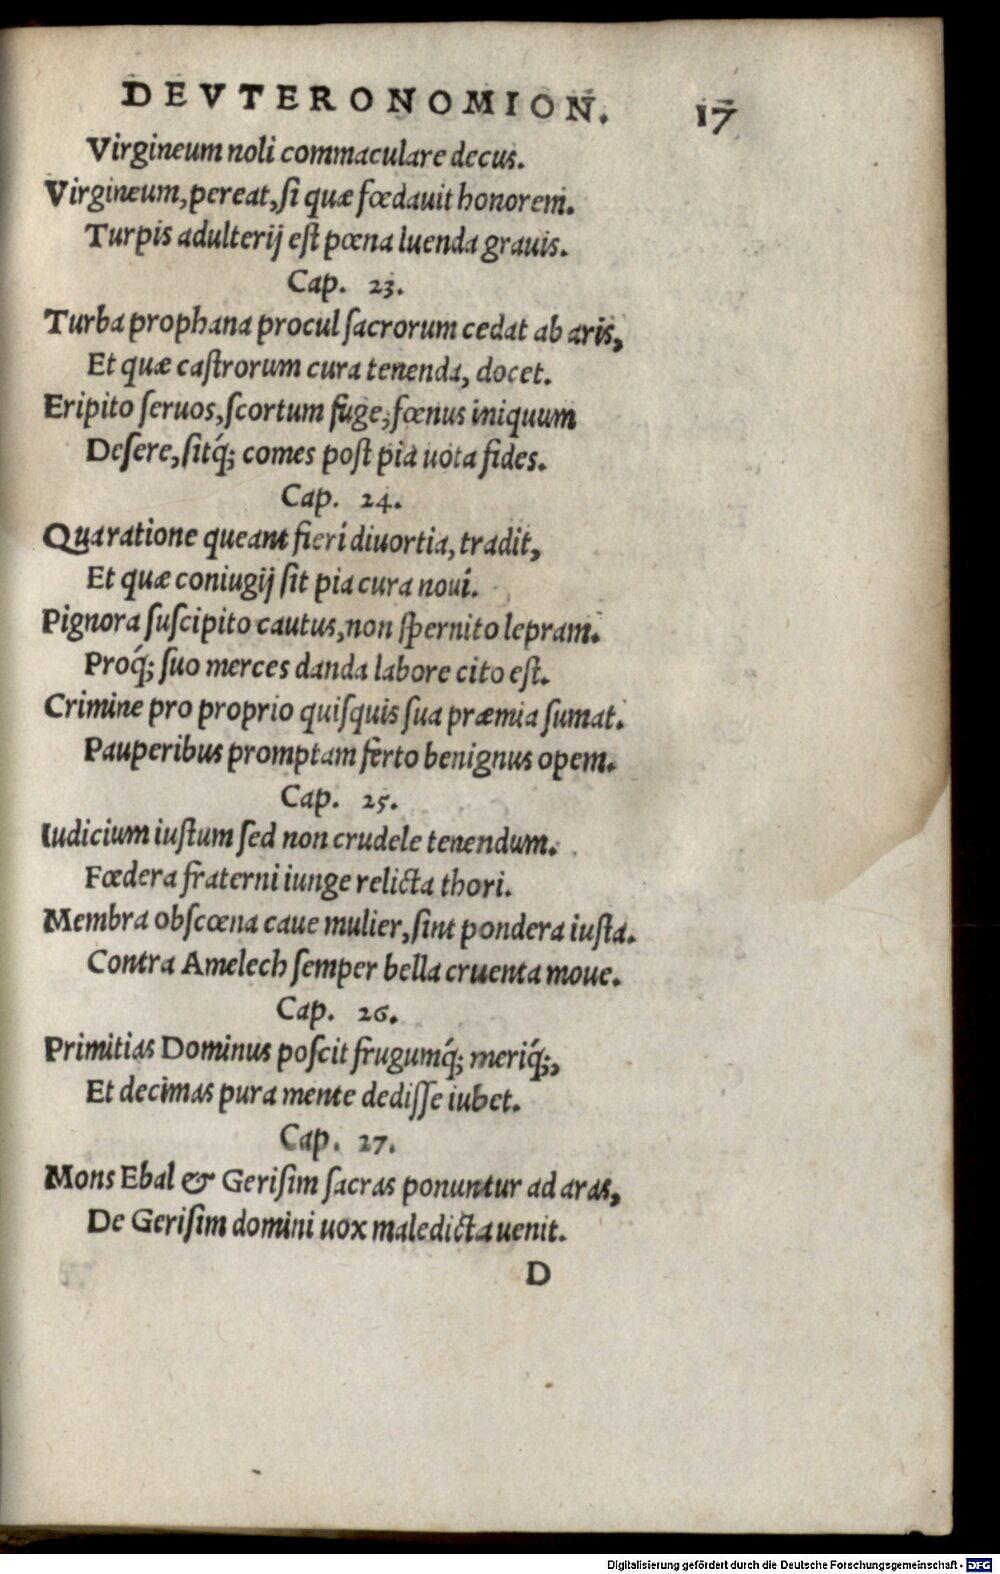 DEVTERONOMION. 17
Virgineum noli commaculare decus.
Virgineum, pereat, si quæ fœdauit honorem.
Turpis adulterij est pœna luenda grauis.
Cap. 23.
Turba prophana procul sacrorum cedat ab aris,
Et quæ castrorum cura tenenda, docet.
Eripito seruos, scortum fuge, fœnus iniquum
Desere, sitq́; comes post pia uota fides.
Cap. 24.
Qua ratione queant fieri diuortia, tradit,
Et quæ coniugij sit pia cura noui.
Pignora suscipito cautus, non spernito lepram.
Proq́; suo merces danda labore cito est.
Crimine pro proprio quisquis sua præmia sumat.
Pauperibus promptam ferto benignus opem.
Cap. 25.
Iudicium iustum sed non crudele tenendum.
Fœdera fraterni iunge relicta thori.
Membra obscœna caue mulier, sint pondera iusta.
Contra Amelech semper bella cruenta moue.
Cap. 26.
Primitias Dominus poscit frugumq́; meriq́;,
Et decimas pura mente dedisse iubet.
Cap. 27.
Mons Ebal & Gerisim sacras ponuntur ad aras,
De Gerisim domini uox maledicta uenit.
D
Digitalisierung gefördert durch die Deutsche Forschungsgemeinschaft - DFG